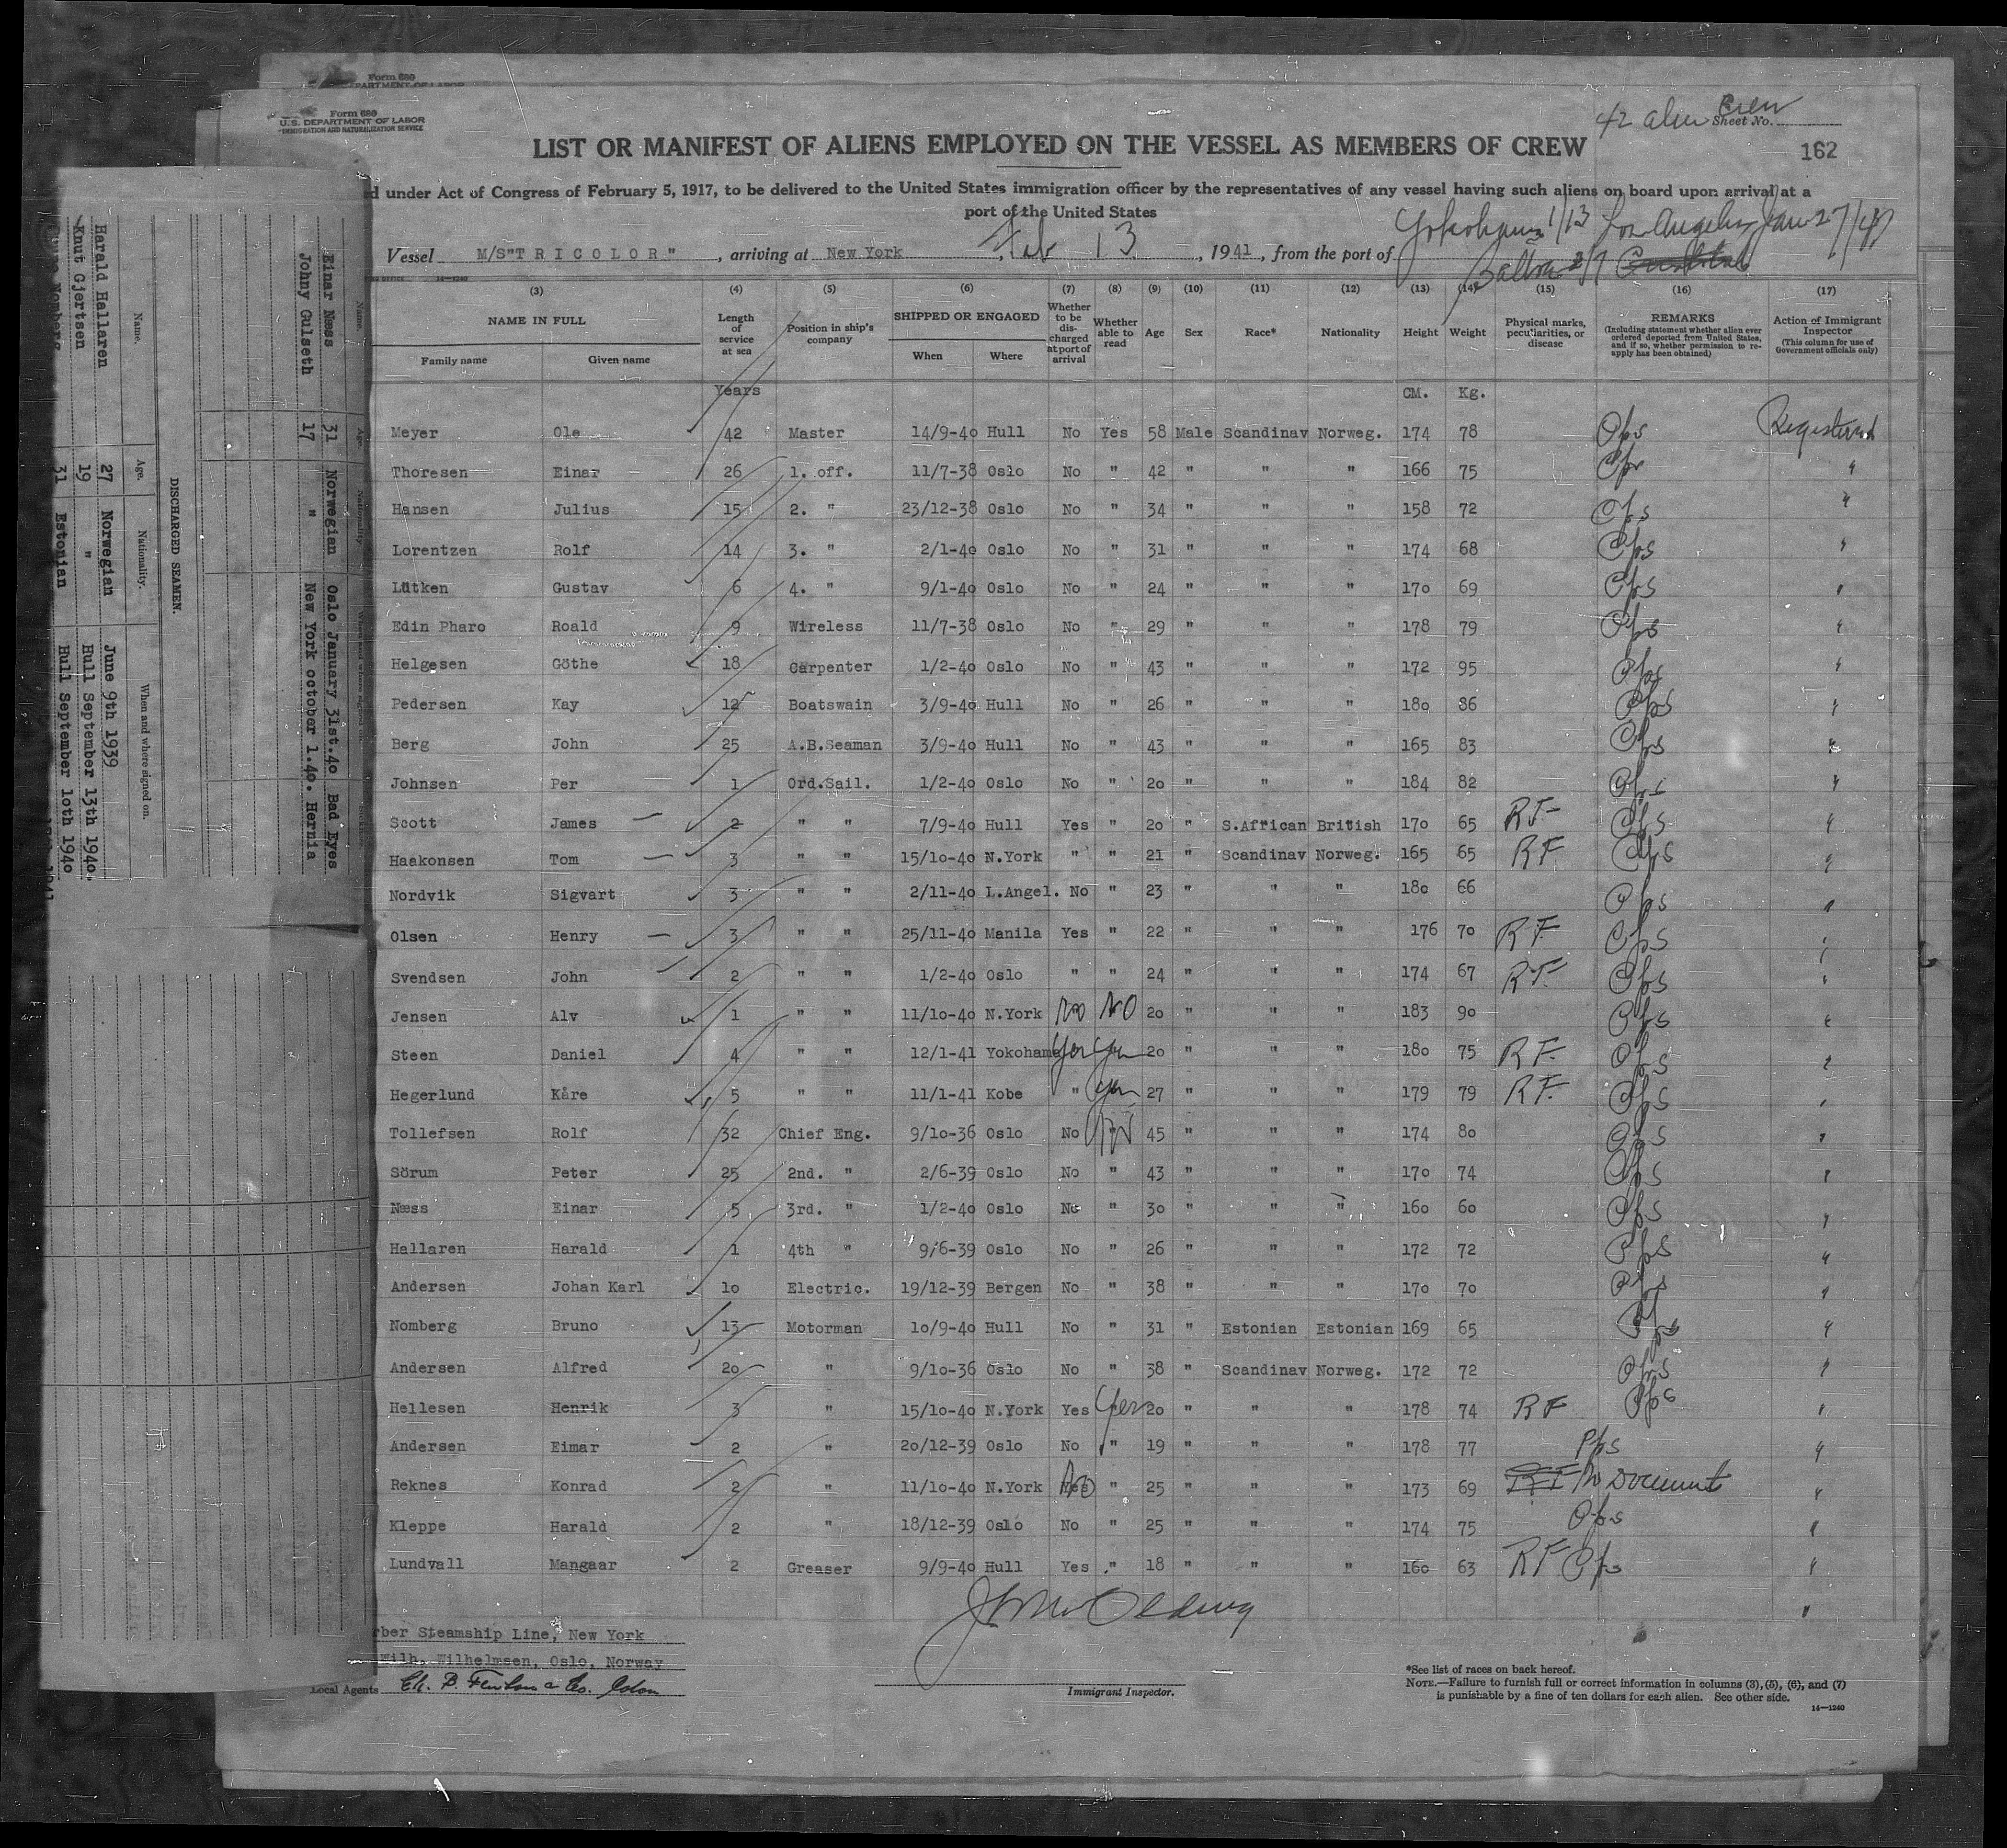 Form 680
PARTMENT OF LABOR
Form 680
U.S. DEPARTMENT OF LABOR
IMMIGRATION AND NATURALIZATION SERVICE
42 alien Crew
Sheet No.
LIST OR MANIFEST OF ALIENS EMPLOYED ON THE VESSEL AS MEMBERS OF CREW
162
d under Act of Congress of February 5, 1917, to be delivered to the United States immigration officer by the representatives of any vessel having such aliens on board upon arrival at a
port of the United States
Yokohama 1/13 Los Angeles Jan 27/41
Vessel M/S"TRICOLOR", arriving at New York, Feb 13, 1941, from the port of
Balboa 2/7 Cristobal
14-1240
(3) (4) (5) (6) (7) (8) (9) (10) (11) (12) (13) (14) (15) (16) (17)
NAME IN FULL Family name Given name Length of service at sea Position in ship's company SHIPPED OR ENGAGED When Where Whether to be discharged at port of arrival Whether able to read Age Sex Race* Nationality Height Weight Physical marks, peculiarities, or disease REMARKS (Including statement whether alien ever ordered deported from United States, and if so, whether permission to re-apply has been obtained) Action of Immigrant Inspector (This column for use of Government officials only)
Years CM. Kg.
Meyer Ole 42 Master 14/9-40 Hull No Yes 58 Male Scandinav Norweg. 174 78 Ops Registered
Thoresen Einar 26 1. off. 11/7-38 Oslo No " 42 " " " 166 75 Ops "
Hansen Julius 15 2. " 23/12-38 Oslo No " 34 " " " 158 72 Ops "
Lorentzen Rolf 14 3. " 2/1-40 Oslo No " 31 " " " 174 68 Ops "
Lütken Gustav 6 4. " 9/1-40 Oslo No " 24 " " " 170 69 Ops "
Edin Pharo Roald 9 Wireless 11/7-38 Oslo No " 29 " " " 178 79 Ops "
Helgesen Göthe 18 Carpenter 1/2-40 Oslo No " 43 " " " 172 95 Ops "
Pedersen Kay 12 Boatswain 3/9-40 Hull No " 26 " " " 180 86 Ops "
Berg John 25 A.B.Seaman 3/9-40 Hull No " 43 " " " 165 83 Ops "
Johnsen Per 1 Ord.Sail. 1/2-40 Oslo No " 20 " " " 184 82 Ops "
Scott James 2 " " 7/9-40 Hull Yes " 20 " S.African British 170 65 RF Ops "
Haakonsen Tom 3 " " 15/10-40 N.York " " 21 " Scandinav Norweg. 165 65 RF Ops "
Nordvik Sigvart 3 " " 2/11-40 L.Angel. No " 23 " " " 180 66 Ops "
Olsen Henry 3 " " 25/11-40 Manila Yes " 22 " " " 176 70 RF Ops "
Svendsen John 2 " " 1/2-40 Oslo " " 24 " " " 174 67 RF Ops "
Jensen Alv 1 " " 11/10-40 N.York No NO 20 " " " 183 90 Ops "
Steen Daniel 4 " " 12/1-41 Yokohama Yes Yes 20 " " " 180 75 RF. Ops "
Hegerlund Kåre 5 " " 11/1-41 Kobe " Yes 27 " " " 179 79 RF. Ops "
Tollefsen Rolf 32 Chief Eng. 9/10-36 Oslo No " 45 " " " 174 80 Ops "
Sörum Peter 25 2nd. " 2/6-39 Oslo No " 43 " " " 170 74 Ops "
Næss Einar 5 3rd. " 1/2-40 Oslo No " 30 " " " 160 60 Ops "
Hallaren Harald 1 4th " 9/6-39 Oslo No " 26 " " " 172 72 Ops "
Andersen Johan Karl 10 Electric. 19/12-39 Bergen No " 38 " " " 170 70 Ops "
Nomberg Bruno 13 Motorman 10/9-40 Hull No " 31 " Estonian Estonian 169 65 Ops "
Andersen Alfred 20 " 9/10-36 Oslo No " 38 " Scandinav Norweg. 172 72 Ops "
Hellesen Henrik 3 " 15/10-40 N.York Yes Yes 20 " " " 178 74 RF Ops "
Andersen Eimar 2 " 20/12-39 Oslo No " 19 " " " 178 77 Ops "
Reknes Konrad 2 " 11/10-40 N.York No " 25 " " " 173 69 RF No Document "
Kleppe Harald 2 " 18/12-39 Oslo No " 25 " " " 174 75 Ops "
Lundvall Mangaar 2 Greaser 9/9-40 Hull Yes " 18 " " " 160 63 RF Ops "
rber Steamship Line, New York
Wilh. Wilhelmsen, Oslo, Norway
Local Agents
Immigrant Inspector.
*See list of races on back hereof.
NOTE.—Failure to furnish full or correct information in columns (3), (5), (6), and (7)
is punishable by a fine of ten dollars for each alien. See other side.
14-1240
Name. Age. Nationality
Einar Næss 31 Norwegian Oslo January 31st.40 Bad Eyes
Johny Gulseth 17 " New York october 1.40. Hernia
DISCHARGED SEAMEN.
Name. Age. Nationality. When and where signed on.
Harald Hallaren 27 Norwegian June 9th 1939
Knut Gjertsen 19 " Hull September 13th 1940.
Bruno Nomberg 31 Estonian Hull September 10th 1940